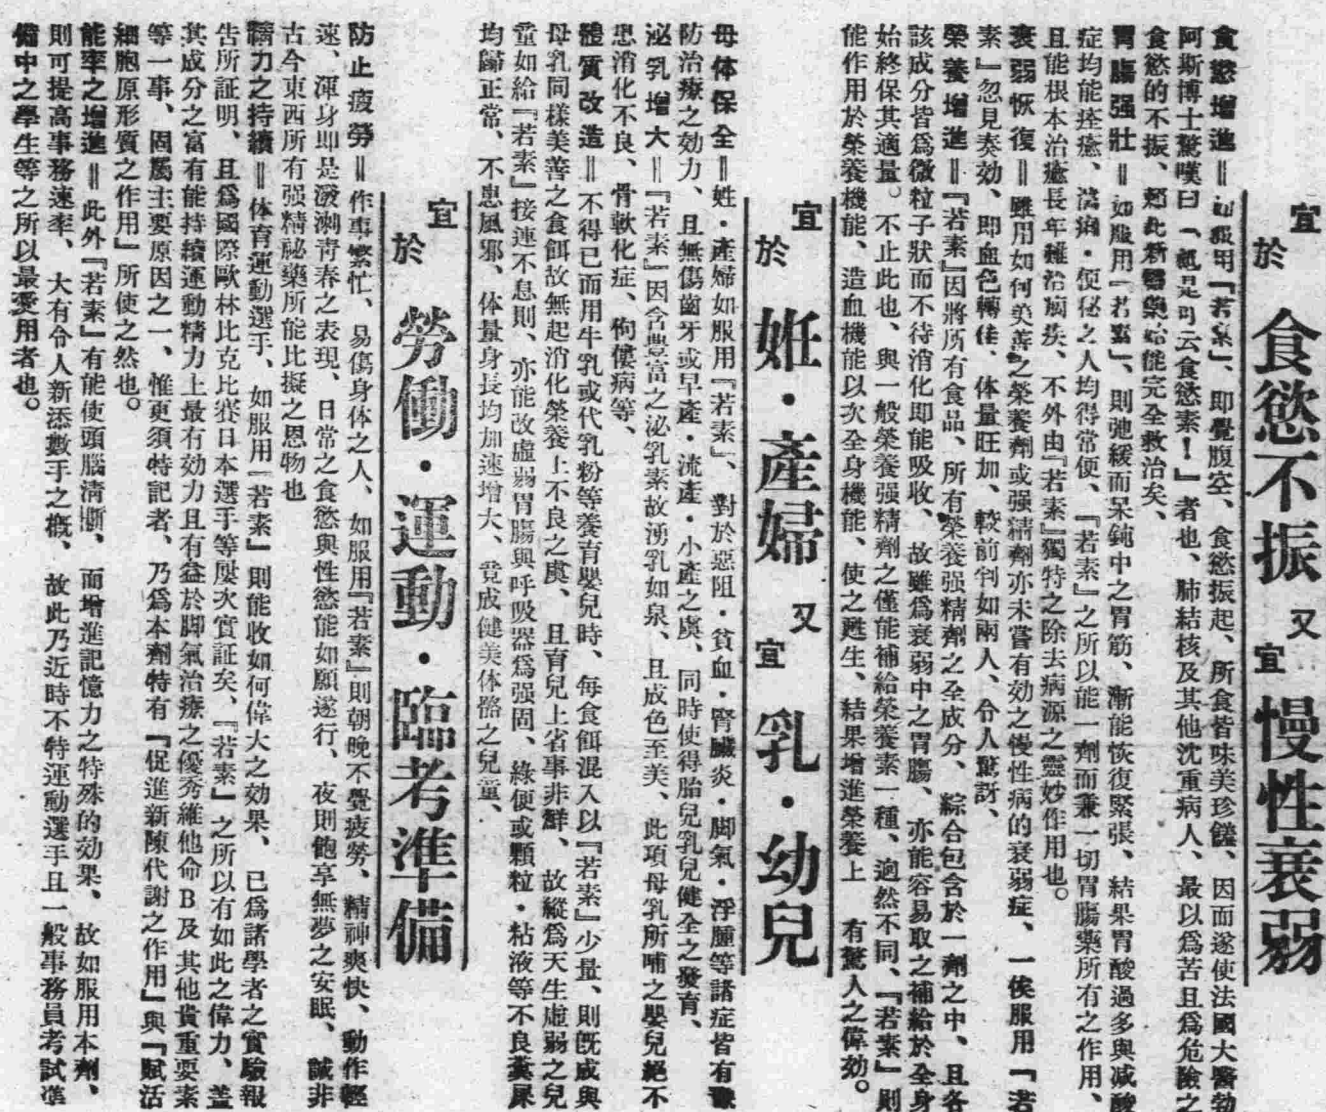 宜於 食慾不振 又宜 慢性衰弱
食慾增進＝如服用『若素』、即覺腹空、食慾振起、所食皆味美珍饈、因而遂使法國大醫勃
阿斯博士驚嘆曰「眞是可云食慾素！」者也、肺結核及其他沈重病人、最以爲苦且爲危險之
食慾的不振、賴此新醫藥始能完全救治矣、
胃腸强壯＝如服用『若素』、則弛緩而呆鈍中之胃筋、漸能恢復緊張、結果胃酸過多與减酸
症均能痊癒、瀉痢・便秘之人均得常便、『若素』之所以能一劑而兼一切胃腸藥所有之作用、
且能根本治癒長年難治痼疾、不外由『若素』獨特之除去病源之靈妙作用也。
衰弱恢復＝雖用如何美善之榮養劑或强精劑亦未嘗有効之慢性病的衰弱症、一俟服用『若
素』忽見奏効、即血色轉佳、体量旺加、較前判如兩人、令人驚訝、
榮養增進＝『若素』因將所有食品、所有榮養强精劑之全成分、綜合包含於一劑之中、且各
該成分皆爲微粒子狀而不待消化即能吸收、故雖爲衰弱中之胃腸、亦能容易取之補給於全身
始終保其適量。不止此也、與一般榮養强精劑之僅能補給榮養素一種、迥然不同、『若素』則
能作用於榮養機能、造血機能以次全身機能、使之甦生、結果增進榮養上 有驚人之偉効。
宜於 姙・產婦 又宜 乳・幼兒
母体保全＝姓・產婦如服用『若素』、對於惡阻・貧血・腎臟炎・脚氣・浮腫等諸症皆有豫
防治療之効力、且無傷齒牙或早產・流產・小產之虞、同時使得胎兒乳兒健全之發育、
泌乳增大＝『若素』因含豊富之泌乳素故湧乳如泉、且成色至美、此項母乳所哺之嬰兒絕不
患消化不良、骨軟化症、佝僂病等、
體質改造＝不得已而用牛乳或代乳粉等養育嬰兒時、每食餌混入以『若素』少量、則既成與
母乳同樣美善之食餌故無起消化榮養上不良之虞、且育兒上省事非鮮、故縱爲天生虛弱之兒
童如給『若素』接連不息則、亦能改虛弱胃腸與呼吸器爲强固、綠便或顆粒・粘液等不良糞屎
均歸正常、不患風邪、体量身長均加速增大、竟成健美体骼之兒童、
宜於 勞働・運動・臨考準備
防止疲勞＝作事繁忙、易傷身体之人、如服用『若素』則朝晚不覺疲勞、精神爽快、動作輕
速、渾身即是潑溂靑春之表現、日常之食慾與性慾能如願遂行、夜則飽享無夢之安眠、誠非
古今東西所有强精祕藥所能比擬之恩物也
精力之持續＝体育運動選手、如服用『若素』則能收如何偉大之効果、已爲諸學者之實驗報
告所証明、且爲國際歐林比克比賽日本選手等屢次實証矣、『若素』之所以有如此之偉力、盖
其成分之富有能持續運動精力上最有効力且有益於脚氣治療之優秀維他命B及其他貴重要素
等一事、固屬主要原因之一、惟更須特記者、乃爲本劑特有『促進新陳代謝之作用』與『賦活
細胞原形質之作用』所使之然也。
能率之增進＝此外『若素』有能使頭腦淸晣、而增進記憶力之特殊的効果、故如服用本劑、
則可提高事務速率、大有令人新添數手之概、故此乃近時不特運動選手且一般事務員考試準
備中之學生等之所以最愛用者也。